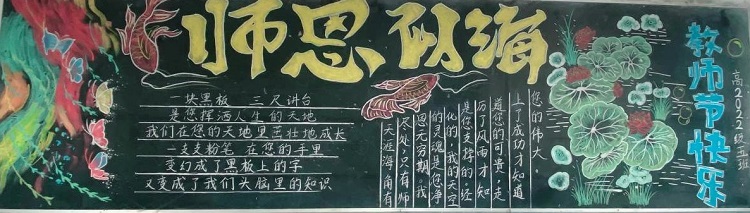 师恩似海
一块黑板 三尺讲台
是您挥洒人生的天地
我们在您的天地里茁壮地成长
一支支粉笔 在您的手里
变幻成了黑板上的字
又变成了我们头脑里的知识
您的伟大,
上了成功才知道
道您的可贵,走
历了风雨才知
是您支撑的,经
化的,我的天空
的灵魂是您净
恩无穷期,我
尽处,只有师
天涯海角有
教师节快乐
高2022级五班